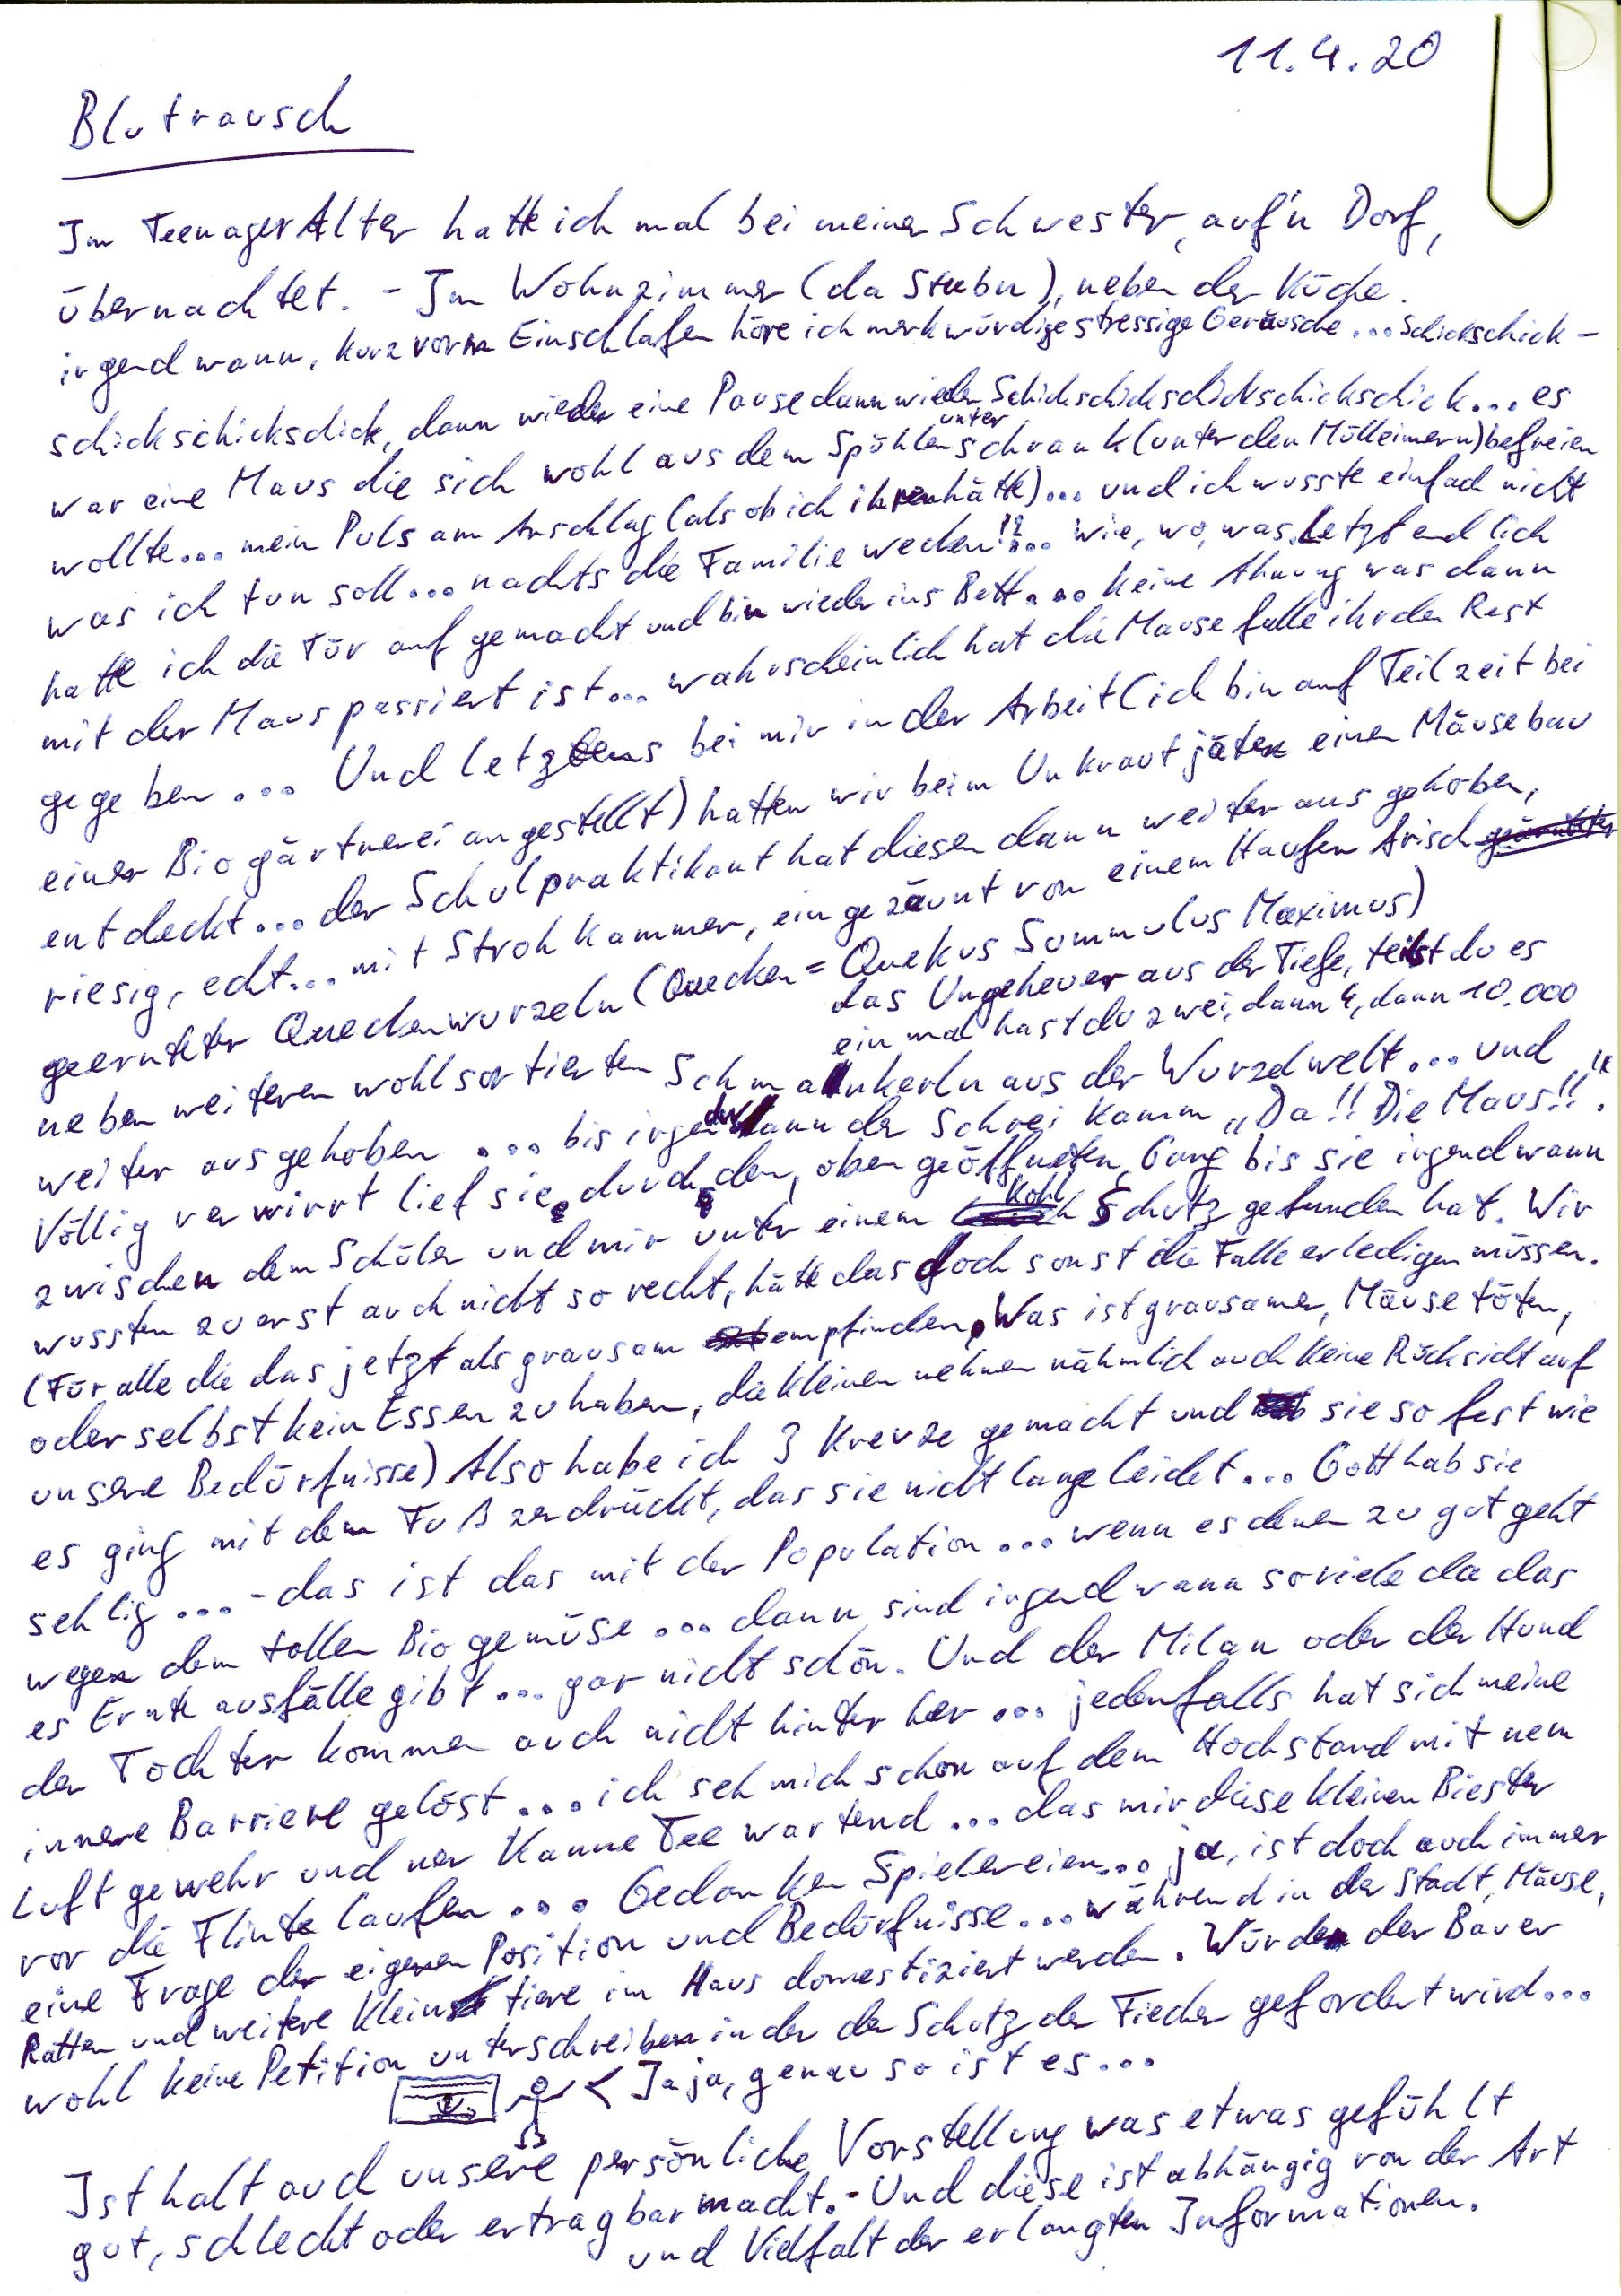 11.4.20
Blutrausch
Im Teenager Alter hatte ich mal bei meiner Schwester, auf'n Dorf,
übernachtet. - Im Wohnzimmer (da Stubn), neben der Küche.
irgendwann, kurz vorm Einschlafen höre ich merkwürdige stressige Geräusche... schickschick-
schickschickschick, dann wieder eine Pause dann wieder Schickschickschickschickschick... es
war eine Maus die sich wohl aus dem Spühlenunterschrank (unter den Mülleimern) befreien
wollte... mein Puls am Anschlag (als ob ich ihren hätte)... und ich wusste einfach nicht
was ich tun soll... nachts die Familie wecken!?... wie, wo, was. Letztendlich
hatte ich die Tür auf gemacht und bin wieder ins Bett... keine Ahnung was dann
mit der Maus passiert ist... wahrscheinlich hat die Mausefalle ihr den Rest
gegeben... Und letztens bei mir in der Arbeit (ich bin auf Teilzeit bei
einer Biogärtnerei angestellt) hatten wir beim Unkraut jäten einen Mäusebau
entdeckt... der Schulpraktikant hat diesen dann weiter ausgehoben,
riesig, echt... mit Strohkammer, eingezäunt von einem Haufen frisch
geernteter Queckenwurzeln (Quecken = Quekus Summulus Maximus)
das Ungeheuer aus der Tiefe, teilst du es
ein mal hast du zwei, dann 4, dann 10.000
neben weiteren wohlsortierten Schmankerln aus der Wurzelwelt... und
weiter ausgehoben ... bis irgendwann der Schrei kamm „Da!! Die Maus!!".
Völlig verwirrt lief sie durch den, oben geöffneten, Gang bis sie irgendwann
zwischen dem Schüler und mir unter einem Kohl Schutz gefunden hat. Wir
wussten zuerst auch nicht so recht, hätte das doch sonst die Falle erledigen müssen.
(Für alle die das jetzt als grausam empfinden, Was ist grausamer, Mäuse töten,
oder selbst kein Essen zu haben, die kleinen nehmen nähmlich auch keine Rücksicht auf
unsere Bedürfnisse) Also habe ich 3 Kreuze gemacht und sie so fest wie
es ging mit dem Fuß zerdrückt, das sie nicht lange leidet... Gott hab sie
sehlig... - das ist das mit der Population... wenn es denen zu gut geht
wegen dem tollen Biogemüse... dann sind irgendwann soviele da das
es Ernteausfälle gibt... gar nicht schön. Und der Milan oder der Hund
der Tochter kommen auch nicht hinter her... jedenfalls hat sich meine
innere Barriere gelöst... ich seh mich schon auf dem Hochstand mit nem
Luftgewehr und ner Kanne Tee wartend... das mir diese kleinen Biester
vor die Flinte laufen... Gedanken Spielereien... ja, ist doch auch immer
eine Frage der eigenen Position und Bedürfnisse... während in der Stadt, Mäuse,
Ratten und weitere Kleinsttiere im Haus domestiziert werden. Würde der Bauer
wohl keine Petition unterschreiben in der der Schutz der Fiecher gefordert wird...
< Jaja, genau so ist es...
Ist halt auch unsere persönliche Vorstellung was etwas gefühlt
gut, schlecht oder ertragbar macht. - Und diese ist abhängig von der Art
und Vielfalt der erlangten Informationen.